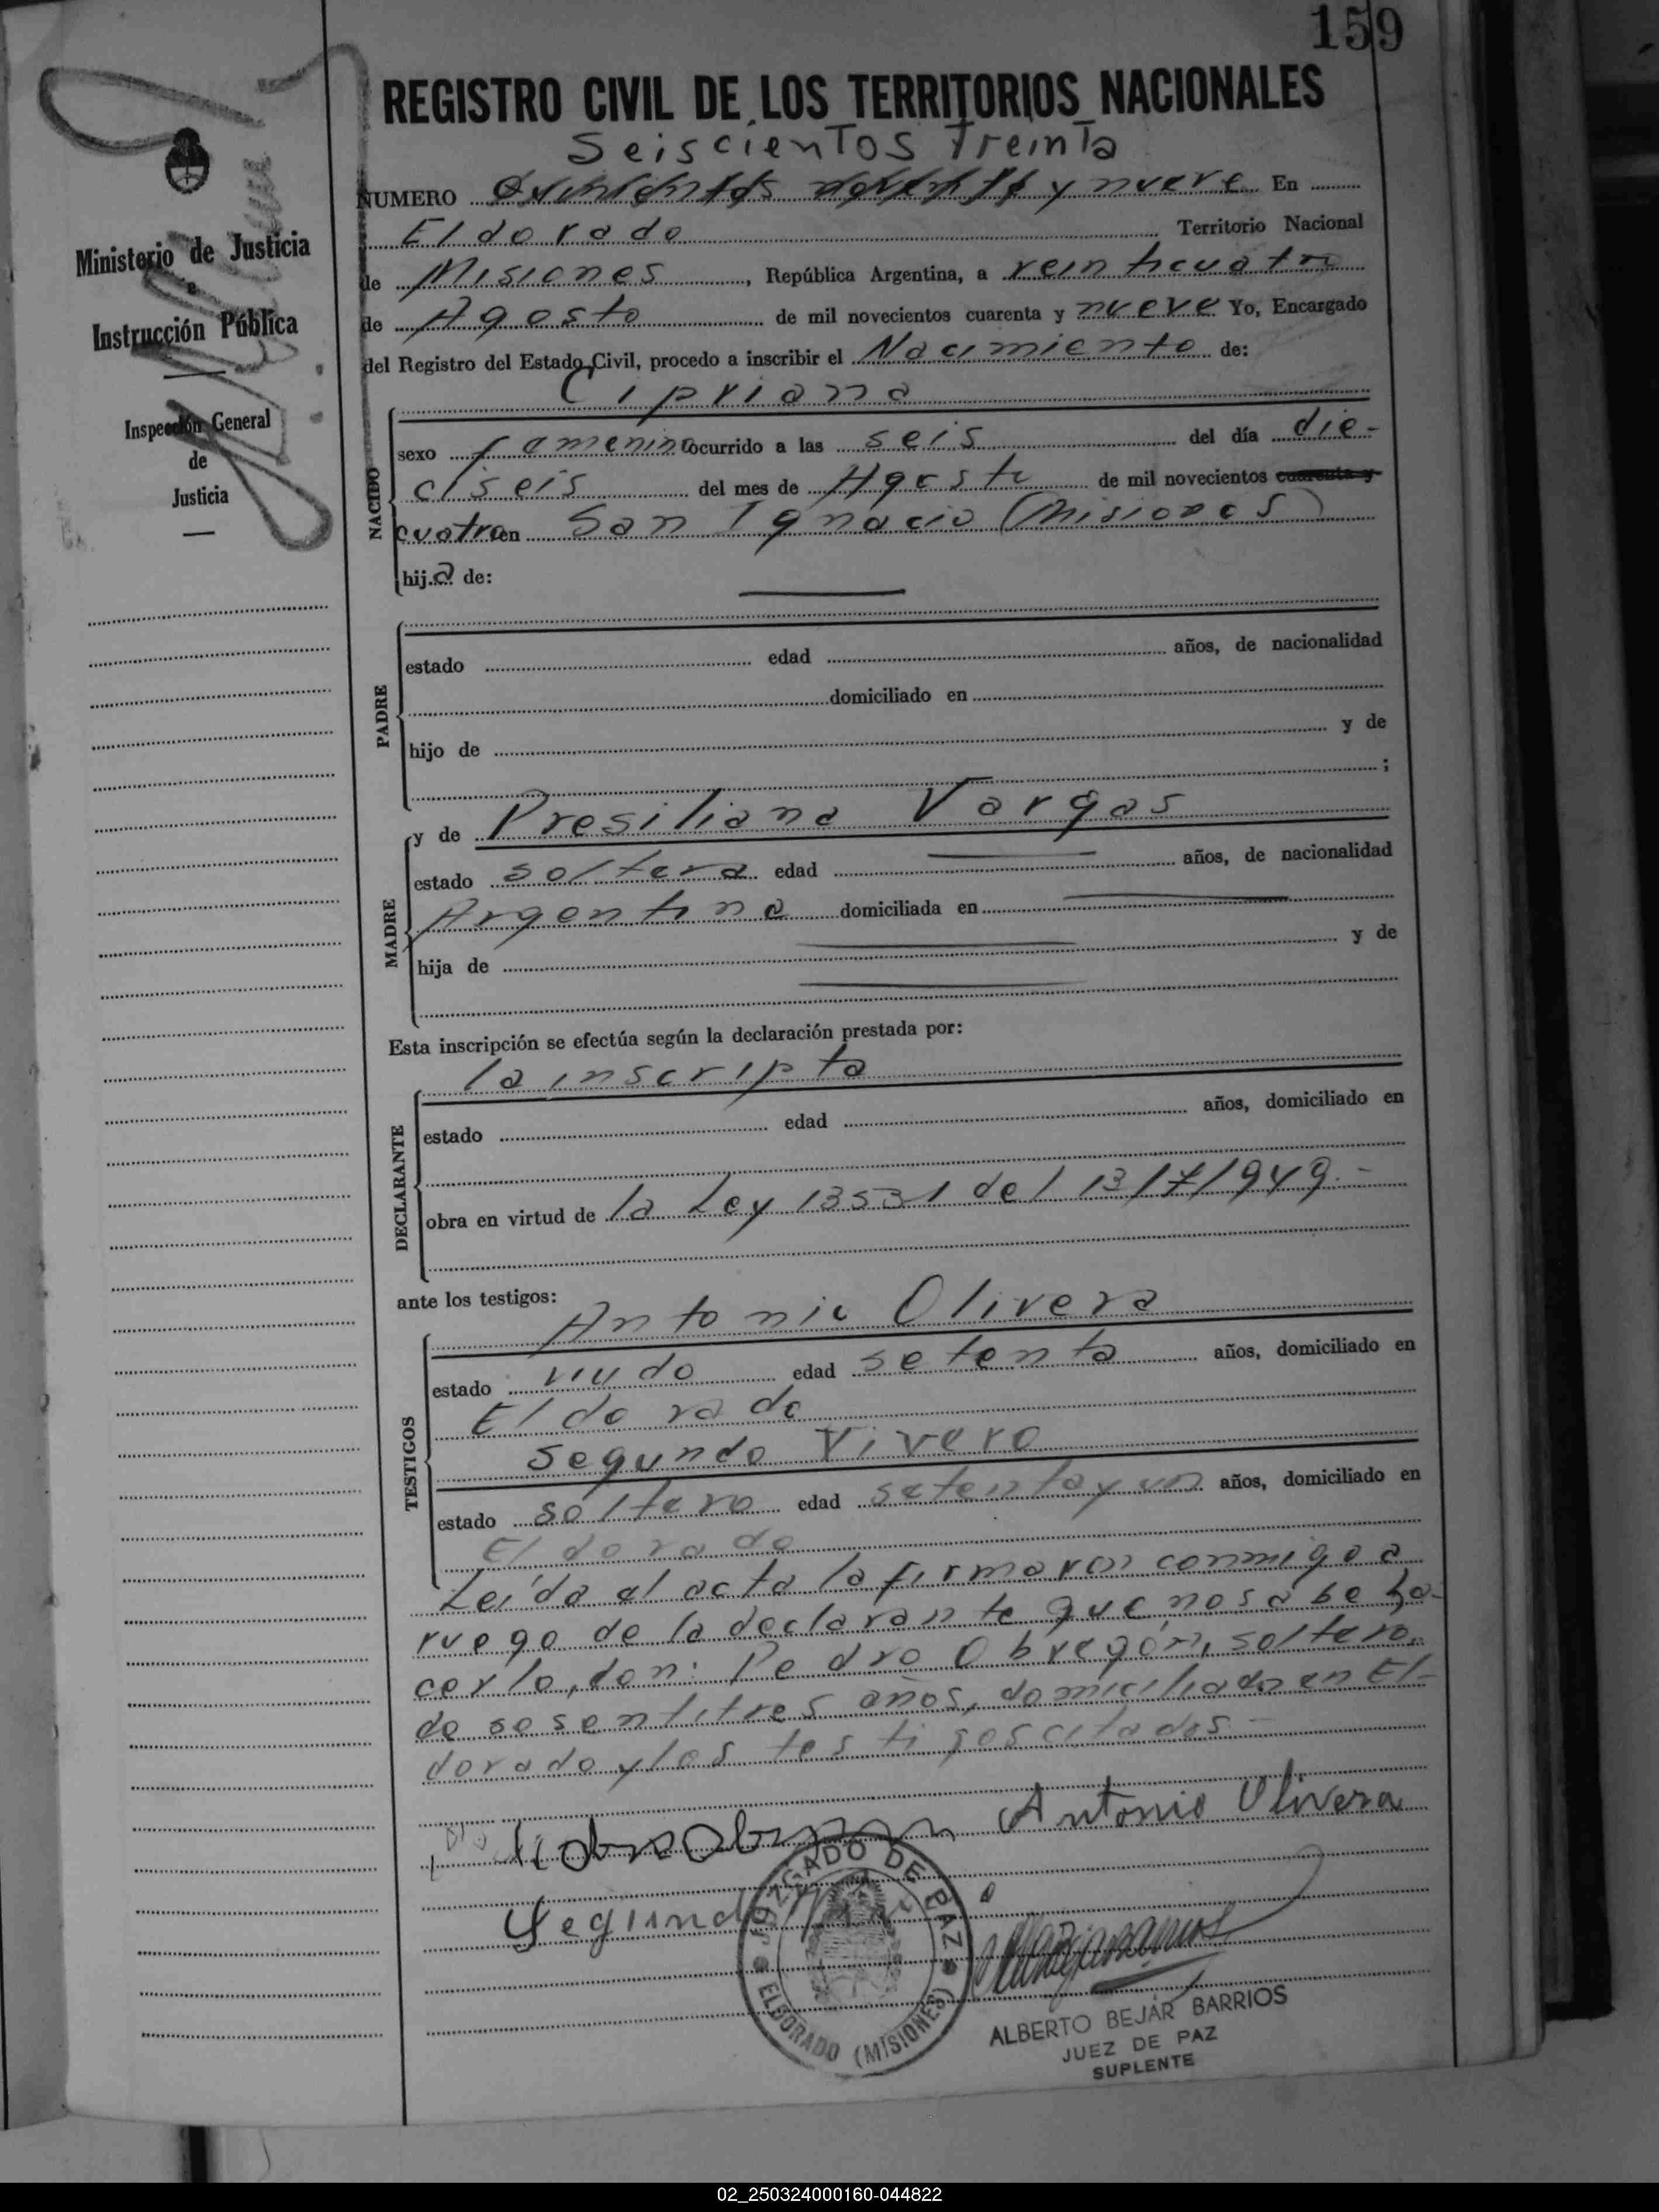 159
REGISTRO CIVIL DE LOS TERRITORIOS NACIONALES
Seiscientos treinta
NUMERO Quinientos noventa y nueve En
Eldorado Territorio Nacional
de Misiones, República Argentina, a veinticuatro
de Agosto de mil novecientos cuarenta y nueve Yo, Encargado
del Registro del Estado Civil, procedo a inscribir el Nacimiento de:
Cipriana
NACIDO
sexo famenino ocurrido a las seis del día die-
ciseis del mes de Agosto de mil novecientos cuarenta y
cuatro en San Ignacio (Misiones)
hija de:
PADRE
estado edad años, de nacionalidad
domiciliado en
hijo de y de
;
MADRE
y de Presiliana Vargas
estado soltera edad años, de nacionalidad
Argentina domiciliada en
hija de y de
Esta inscripción se efectúa según la declaración prestada por:
la inscripta
DECLARANTE
estado edad años, domiciliado en
obra en virtud de la Ley 13531 del 13/7/1949.-
ante los testigos:
Antonio Olivera
TESTIGOS
estado viudo edad setenta años, domiciliado en
Eldorado
Segundo Vivero
estado soltero edad setentayun años, domiciliado en
Eldorado
Leída el acta la firmaron conmigo a
ruego de la declarante que no sabe ha-
cerlo, don: Pedro Obregón, soltero,
de sesentitres años, domiciliado en El-
dorado y los testigos citados.-
Antonio Olivera
Segundo
JUZGADO DE PAZ
ELDORADO (MISIONES)
ALBERTO BEJAR BARRIOS
JUEZ DE PAZ
SUPLENTE
Ministerio de Justicia
e
Instrucción Pública
Inspección General
de
Justicia
02_250324000160-044822